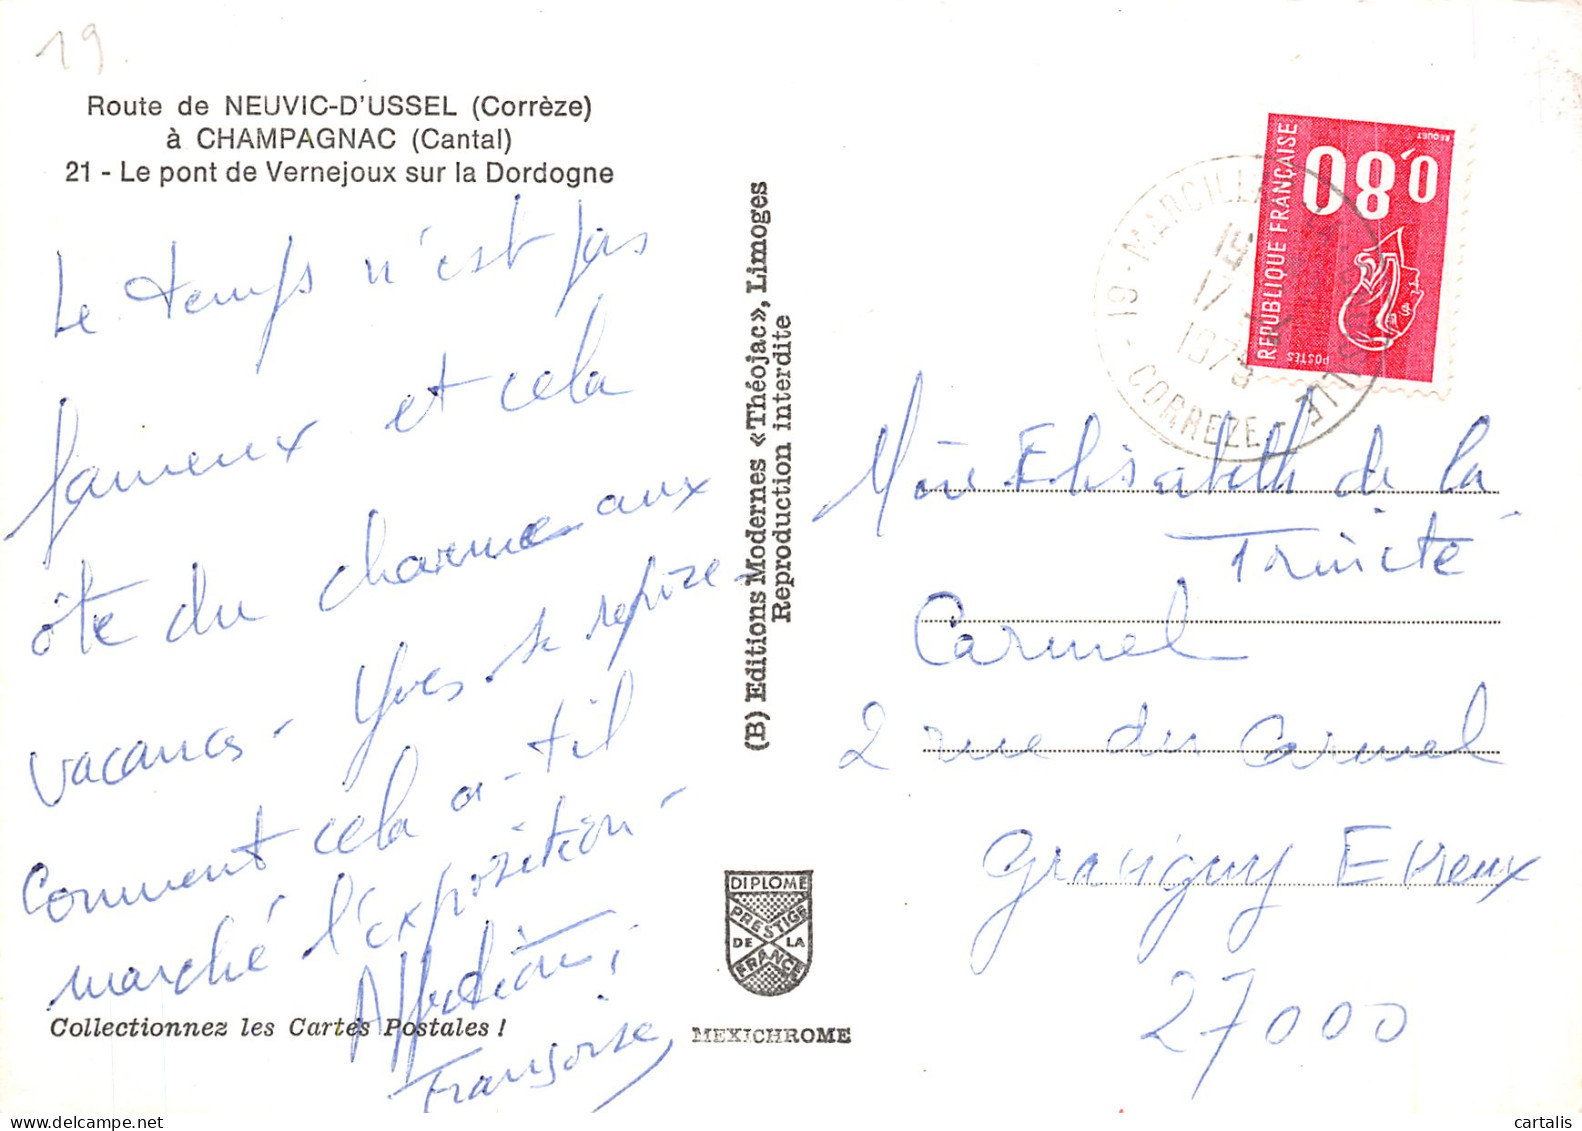 19
Route de NEUVIC-D'USSEL (Corrèze)
à CHAMPAGNAC (Cantal)
21 - Le pont de Vernejoux sur la Dordogne
Le temps n'est pas
fameux et cela
ôte du charme aux
vacances - Yves se repose -
Comment cela a-til
marché l'exposition -
Affections,
Françoise,
Collectionnez les Cartes Postales !
(B) Editions Modernes «Théojac», Limoges
Reproduction interdite
DIPLOME
PRESTIGE
DE LA
FRANCE
MEXICHROME
REPUBLIQUE FRANÇAISE
0,80
POSTES
BEQUET
19 - MARCILLAC LA CROISILLE - CORREZE -
19
17
1975
Mère Elisabeth de la
Trinité
Carmel
2 rue du Carmel
Gravigny Evreux
27000
cartalis